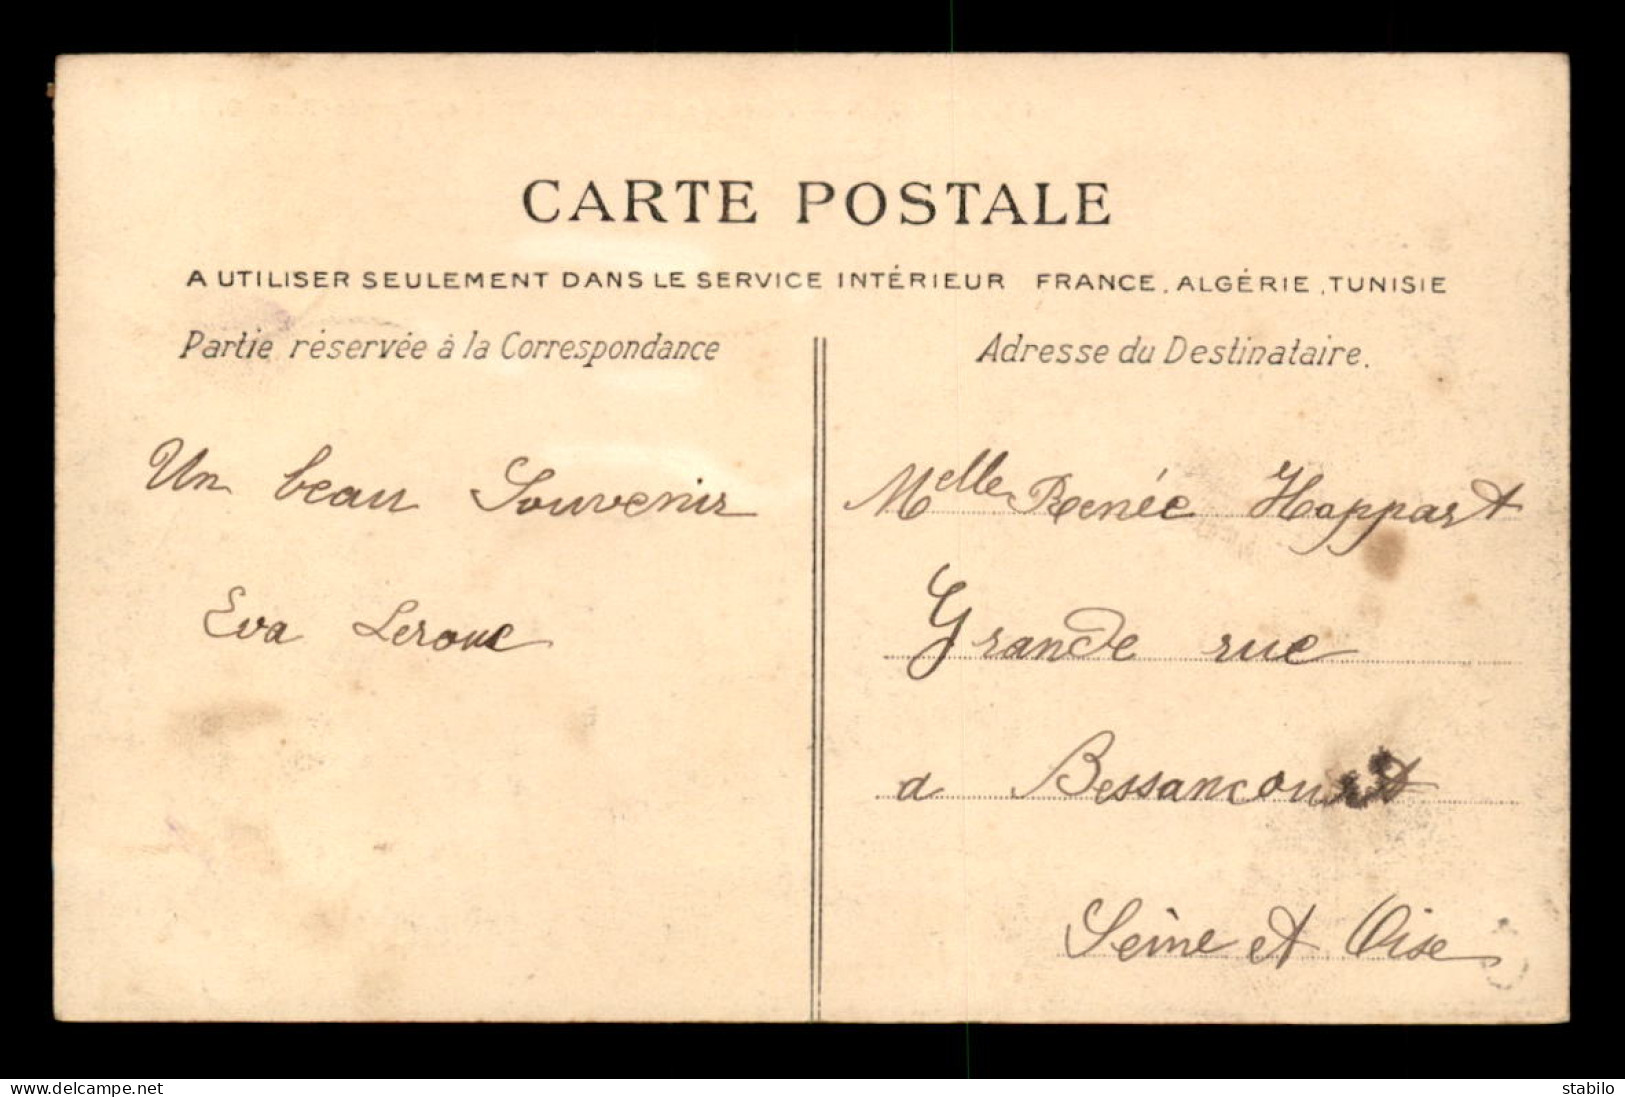 CARTE POSTALE
A UTILISER SEULEMENT DANS LE SERVICE INTÉRIEUR FRANCE, ALGÉRIE, TUNISIE
Partie réservée à la Correspondance
Un beau Souvenir
Eva Leroux
Adresse du Destinataire.
Melle Renée Happart
Grande rue
a Bessancourt
Seine et Oise
delcampe.net
stabilo